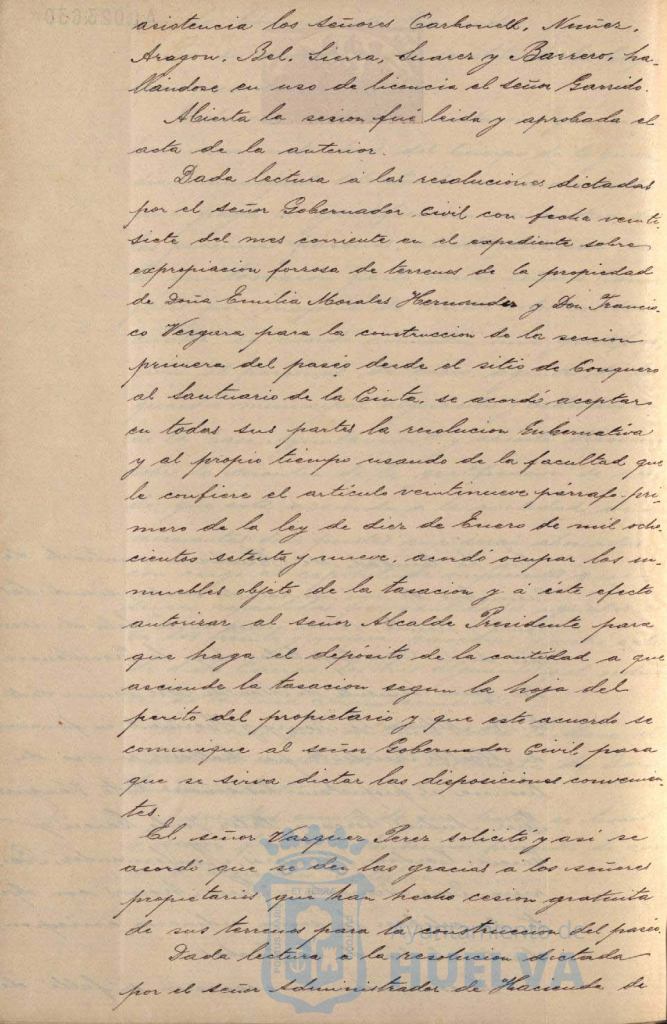 asistencia los señores Carbonell, Nuñez,
Aragon, Bel, Sierra, Suarez y Barrero, ha-
llándose en uso de licencia el señor Garrido.
Abierta la sesion fué leida y aprobada el
acta de la anterior.
Dada lectura á las resoluciones dictadas
por el señor Gobernador civil con fecha veinti-
siete del mes corriente en el expediente sobre
expropiacion forzosa de terrenos de la propiedad
de Doña Emilia Morales Hernandez y Don Francis-
co Vergara para la construccion de la seccion
primera del paseo desde el sitio de Conquero
al Santuario de la Cinta, se acordó aceptar
en todas sus partes la resolucion Gubernativa
y al propio tiempo usando de la facultad que
le confiere el artículo veintinueve párrafo pri-
mero de la ley de diez de Enero de mil ocho-
cientos setenta y nueve, acordó ocupar los in-
muebles objeto de la tasacion y á éste efecto
autorizar al señor Alcalde Presidente para
que haga el depósito de la cantidad a que
asciende la tasacion segun la hoja del
perito del propietario y que este acuerdo se
comunique al señor Gobernador Civil para
que se sirva dictar las disposiciones convenien-
tes.
El señor Vazquez Perez solicitó y asi se
acordó que se den las gracias a los señores
propietarios que han hecho cesion gratuita
de sus terrenos para la construccion del paseo.
Dada lectura a la resolucion dictada
por el señor Administrador de Hacienda de
Ayuntamiento de
HUELVA